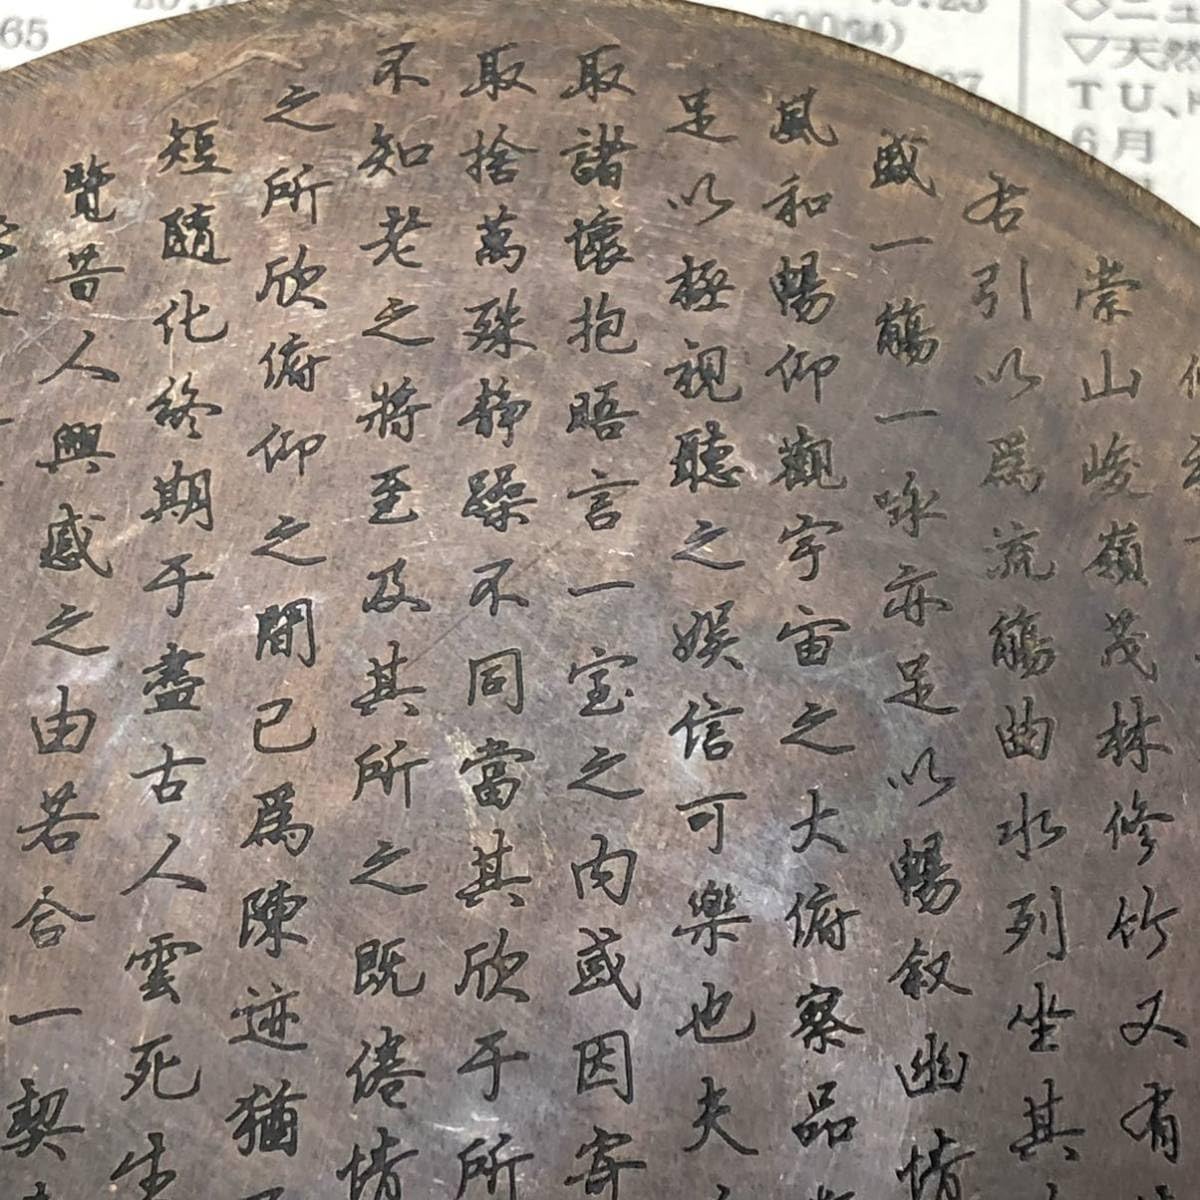 崇山峻嶺茂林修竹又有
右引以為流觴曲水列坐其
盛一觴一咏亦足以暢叙幽情
風和暢仰觀宇宙之大俯察品
足以極視聽之娛信可樂也夫
取諸懷抱晤言一室之內或因寄
取捨萬殊静躁不同當其欣于所
不知老之將至及其所之既倦情
之所欣俯仰之間已為陳迹猶
短隨化終期于盡古人雲死生
覽昔人興感之由若合一契
65
二
天然
TU、
6月